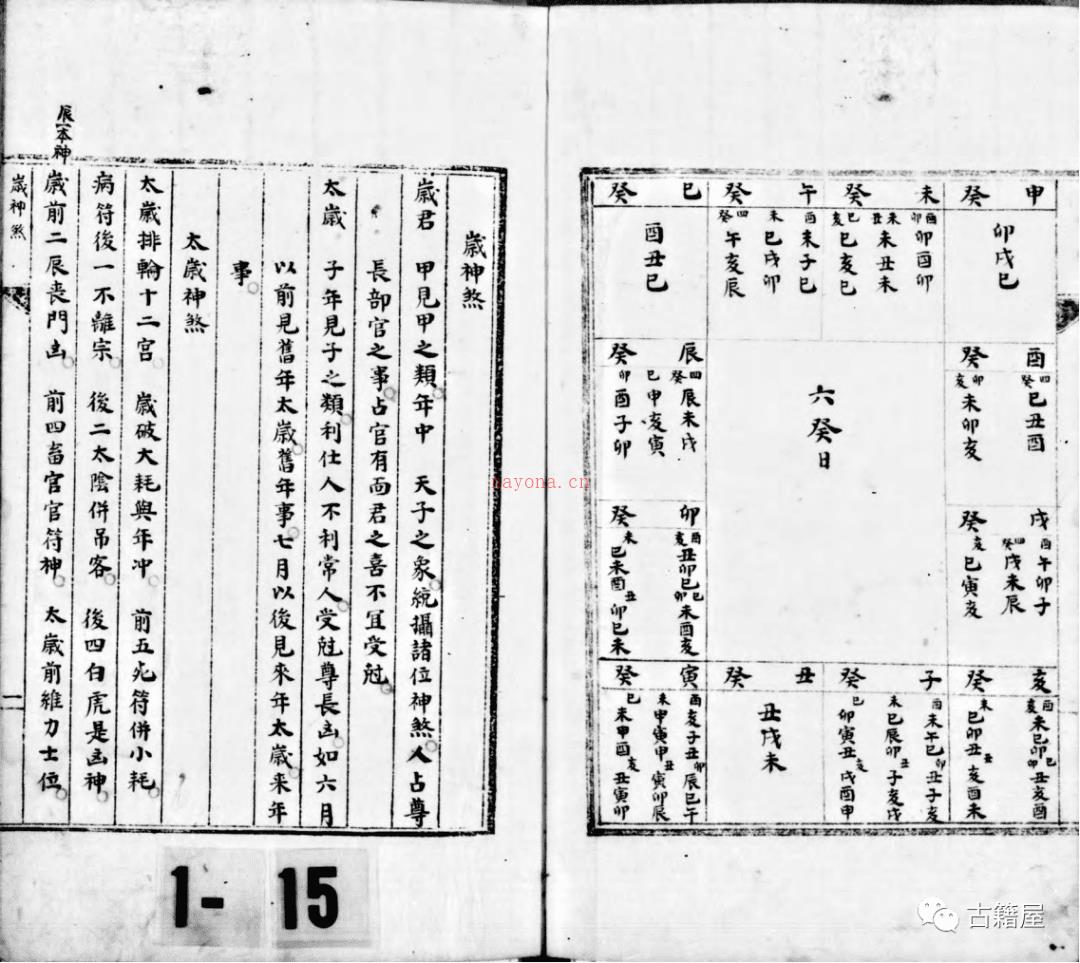 癸 申
卯戌巳
癸 未
酉卯 卯酉卯
未丑 未丑未
巳亥 巳亥巳
癸 午
酉 未子巳
未 巳戌卯
四癸 午亥辰
癸 巳
酉丑巳
癸 酉
四癸 巳丑酉
卯亥 未卯亥
癸 戌
酉 午卯子
四癸 戌未辰
亥 巳寅亥
癸 辰
四癸 辰未戌
巳 申亥寅
卯 酉子卯
癸 卯
酉亥 丑卯巳 巳卯 未酉亥
未 巳未酉 丑 卯巳未
六癸日
癸 亥
酉亥 未巳卯 巳卯 丑亥酉
未 巳卯丑 丑 亥酉未
癸 子
酉 未午巳 卯 丑子亥
未 巳辰卯 丑 子亥戌
巳 卯寅丑 亥 戌酉申
癸 丑
丑戌未
癸 寅
酉 亥子丑 卯 辰巳午
未 申寅申 丑 寅卯辰
巳 未申酉 亥 丑寅卯
歲神煞
歲君 甲見甲之類年中 天子之象統攝諸位神煞人占尊
長部官之事占官有面君之喜不宜受尅
太歲 子年見子之類利仕人不利常人受尅尊長凶如六月
以前見舊年太歲舊年事七月以後見來年太歲来年
事
太歲神煞
太歲排輪十二宮 歲破大耗與年冲 前五死符併小耗
病符後一不離宗 後二太陰併吊客 後四白虎是凶神
辰本神
歲前二辰喪門凶 前四畜官官符神 太歲前維力士位
歲神煞
二
1- 15
nayona.cn
古籍屋